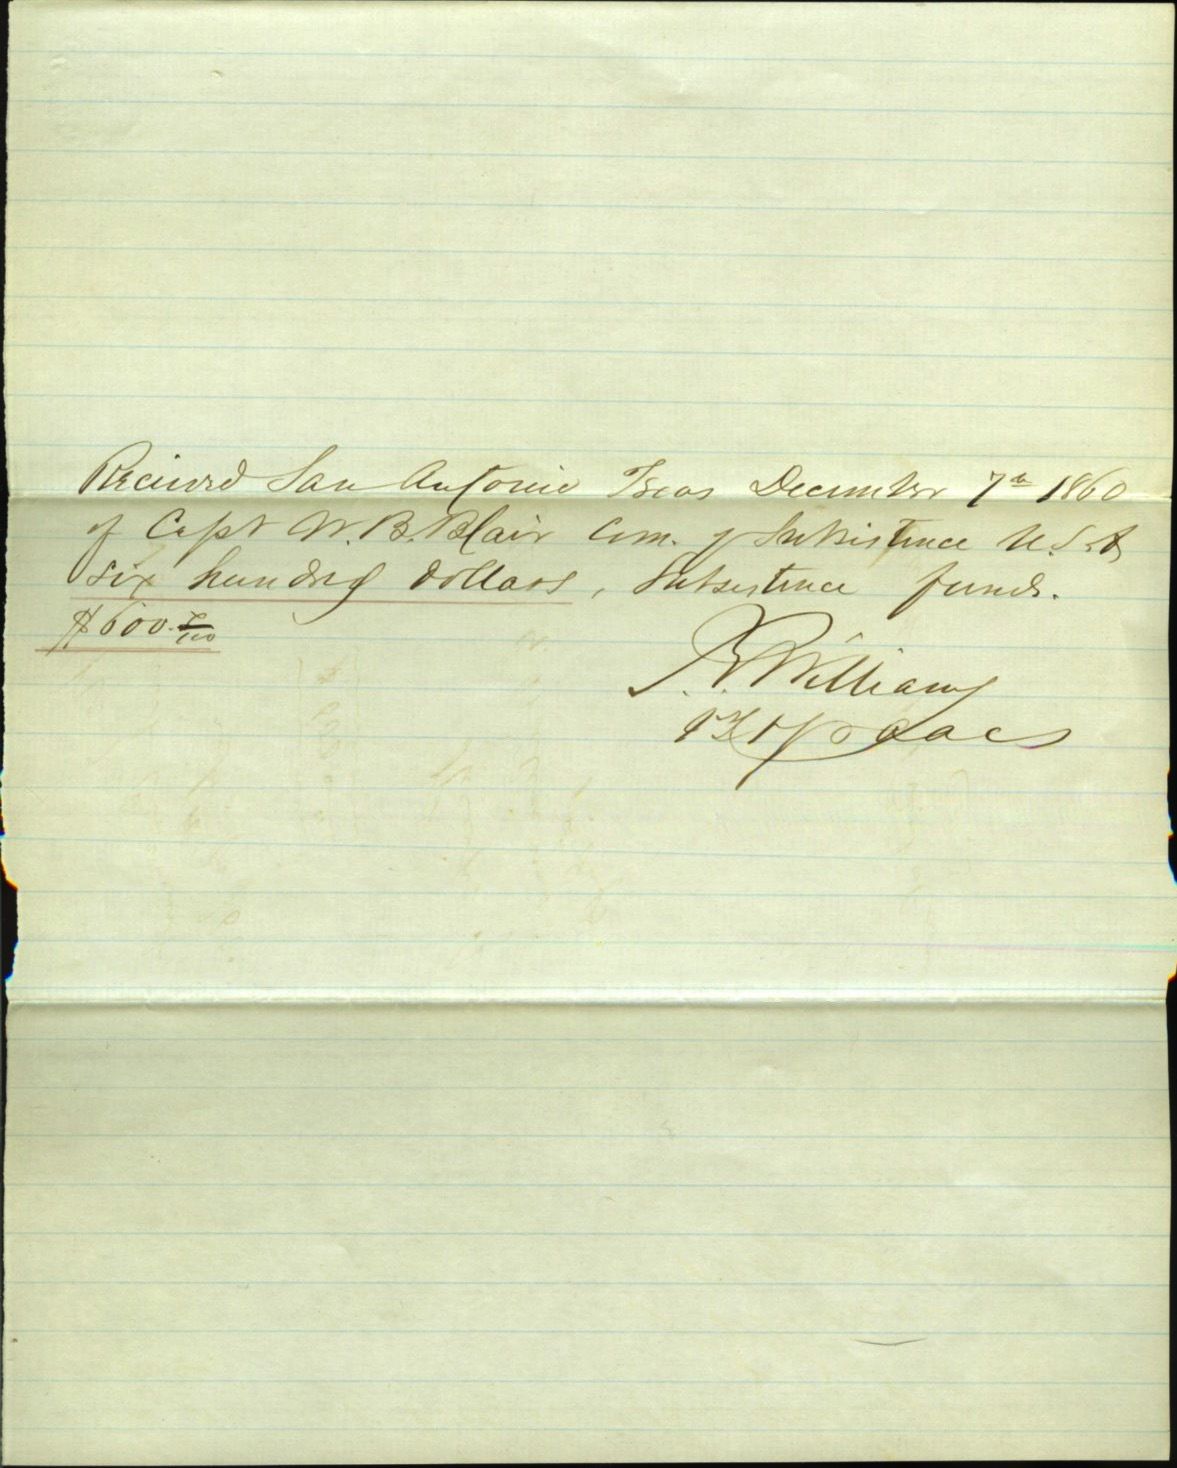 Received San Antonio Texas December 7th 1860
of Capt W. B. Blair Com. of Subsistence U.S.A
six hundred dollars, Subsistence funds.
$600.x/100
Williams